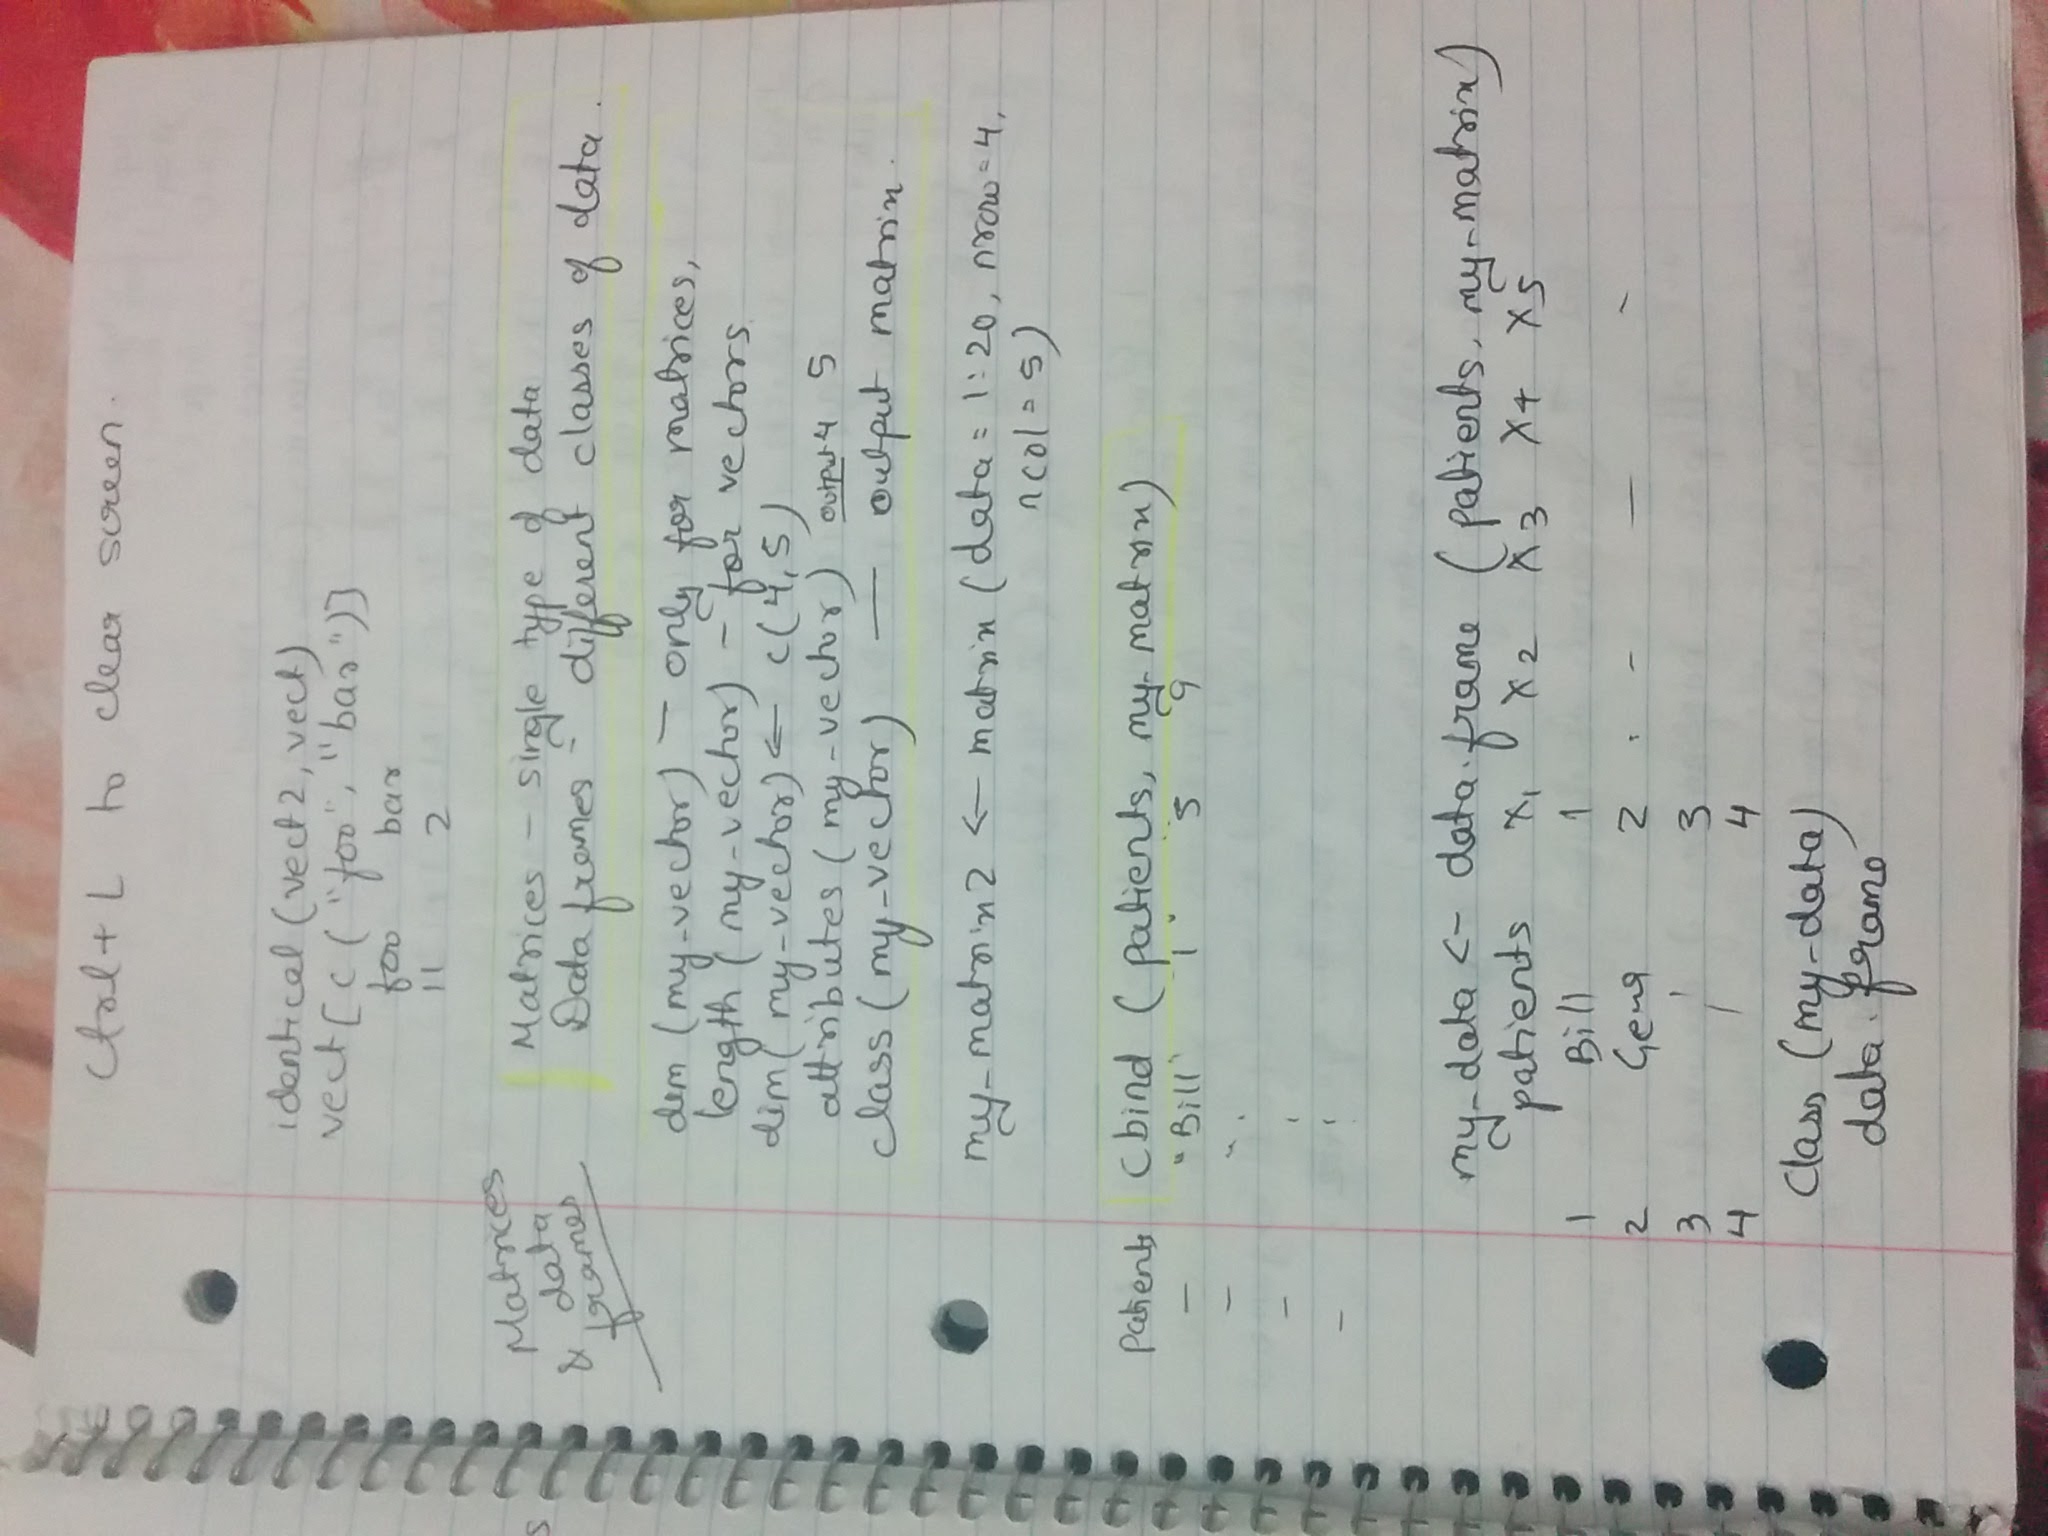 Ctrl + L to clear screen.
identical (vect2, vect)
vect [ c ( "foo", "bar")]
foo bar
11 2
Matrices
& data
frames
Matrices - single type of data
Data frames - different classes of data.
dim (my-vector) — only for matrices,
length (my-vector) - for vectors
dim (my-vector) <- c(4,5)
attributes (my-vector) output 4 5
class (my-vector) — output matrix.
my-matrix2 <- matrix (data = 1:20, nrow=4,
ncol = 5)
cbind (patients, my-matrix)
patients
"Bill" 1 5 9
my-data <- data.frame (patients, my-matrix)
patients X1 X2 X3 X4 X5
1 Bill 1
2 Gena 2
3 3
4 4
Class (my-data)
data.frame